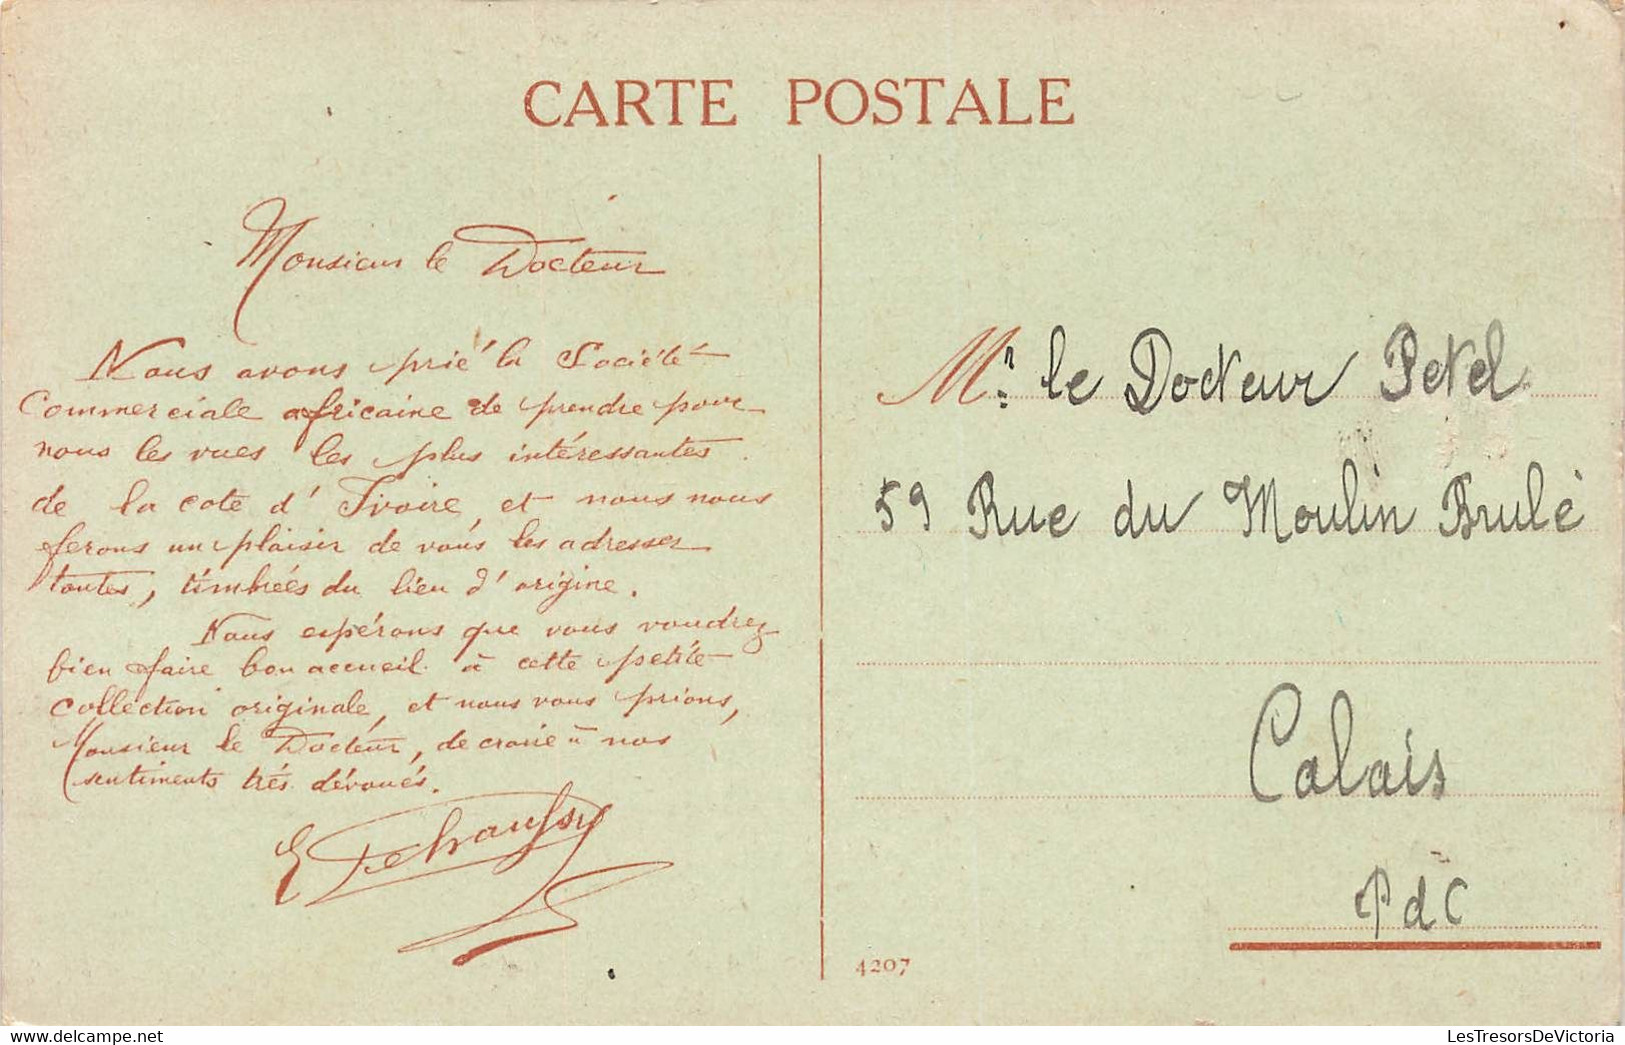 CARTE POSTALE
Monsieur le Docteur
Nous avons prié la Société
Commerciale africaine de prendre pour
nous les vues les plus intéressantes
de la cote d'Ivoire, et nous nous
ferons un plaisir de vous les adresser
toutes, timbrées du lieu d'origine.
Nous espérons que vous voudrez
bien faire bon accueil à cette petite
collection originale, et nous vous prions,
Monsieur le Docteur, de croire à nos
sentiments très dévoués.
Mr le Docteur Petel
59 Rue du Moulin Brulé
Calais
PdC
4207
delcampe.net
LesTresorsDeVictoria